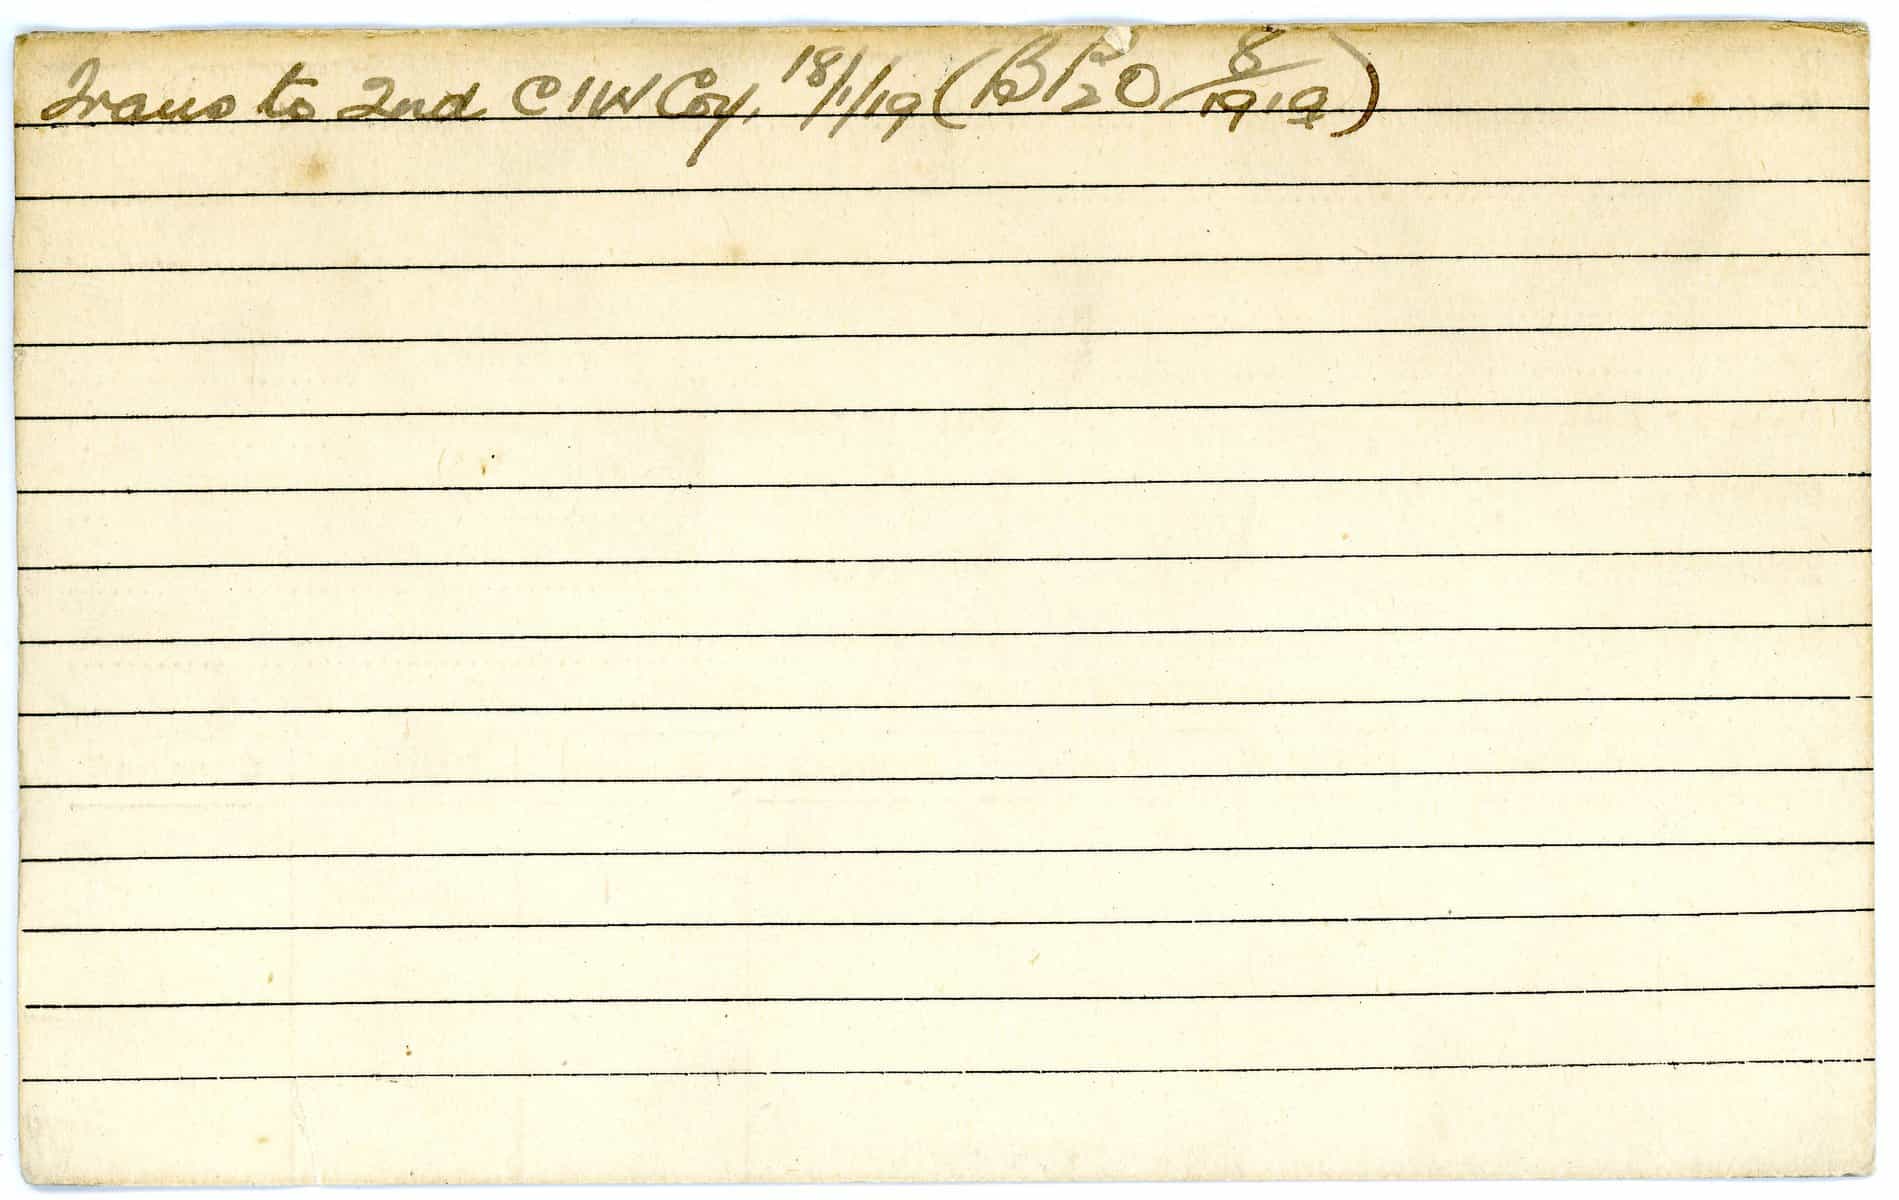 Trans to 2nd C I W Coy. 18/1/19 ( 8/1919)